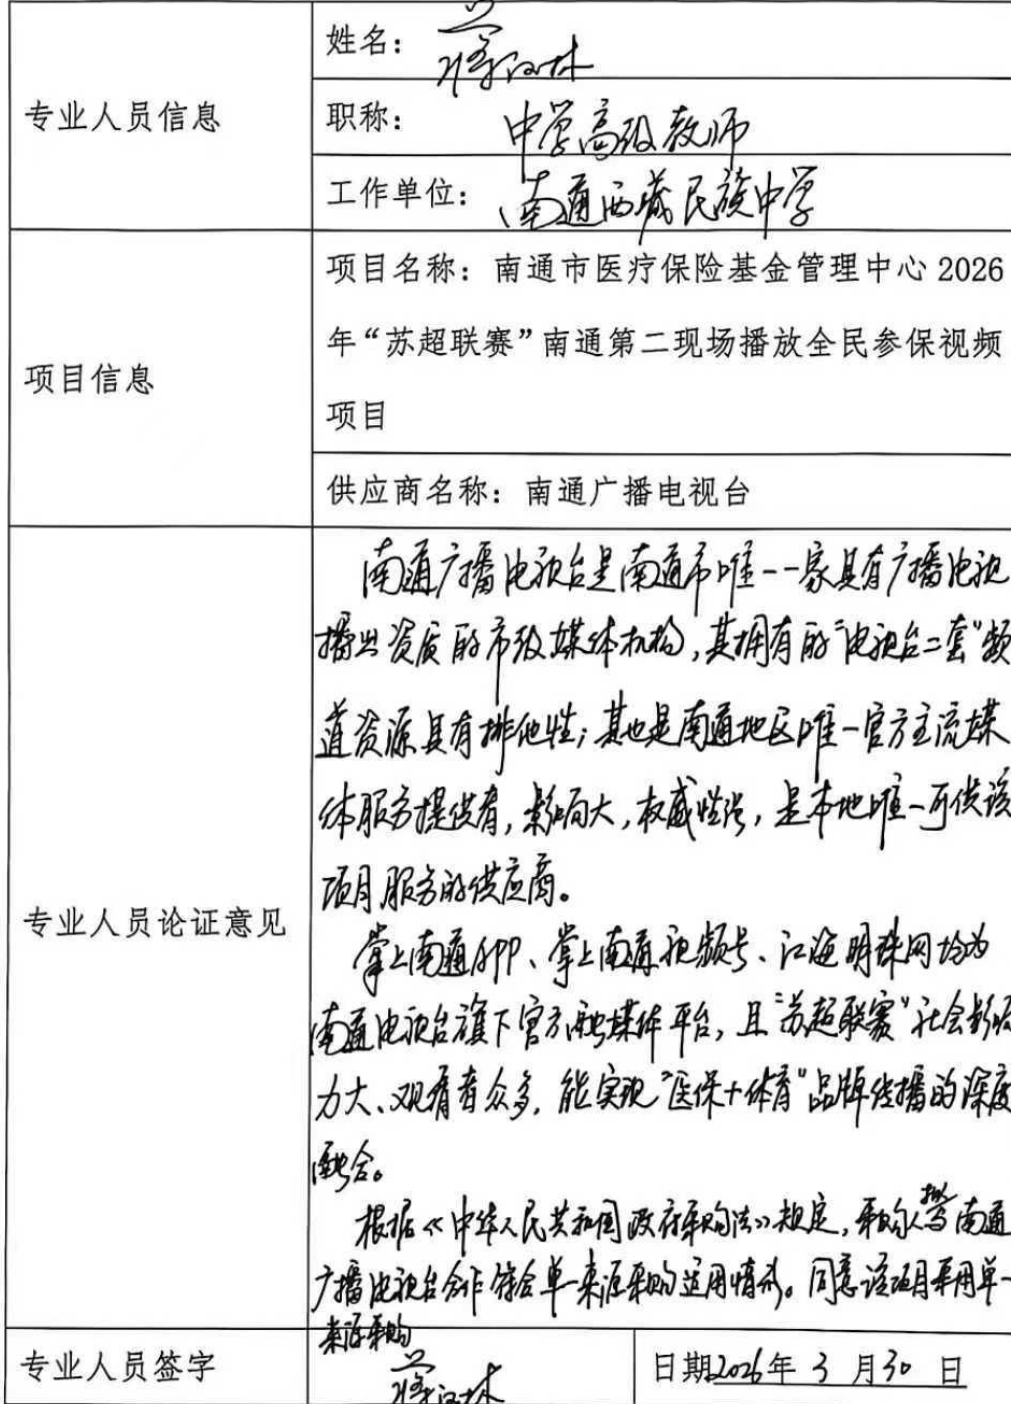 专业人员信息
姓名：蒋汉林
职称：中学高级教师
工作单位：南通西藏民族中学
项目信息
项目名称：南通市医疗保险基金管理中心 2026
年“苏超联赛”南通第二现场播放全民参保视频
项目
供应商名称：南通广播电视台
专业人员论证意见
南通广播电视台是南通市唯一一家具有广播电视
播出资质的市级媒体机构，其拥有的“电视台二套”频
道资源具有排他性；其也是南通地区唯一官方主流媒
体服务提供者，影响大，权威性强，是本地唯一可供该
项目服务的供应商。
掌上南通APP、掌上南通视频号、江海明珠网均为
南通电视台旗下官方融媒体平台，且“苏超联赛”社会影响
力大、观看者众多，能实现“医保+体育”品牌传播的深度
融合。
根据《中华人民共和国政府采购法》规定，采购人拟与南通
广播电视台合作符合单一来源采购适用情形。同意该项目采用单一
来源采购
专业人员签字
蒋汉林
日期2026年 3 月30 日